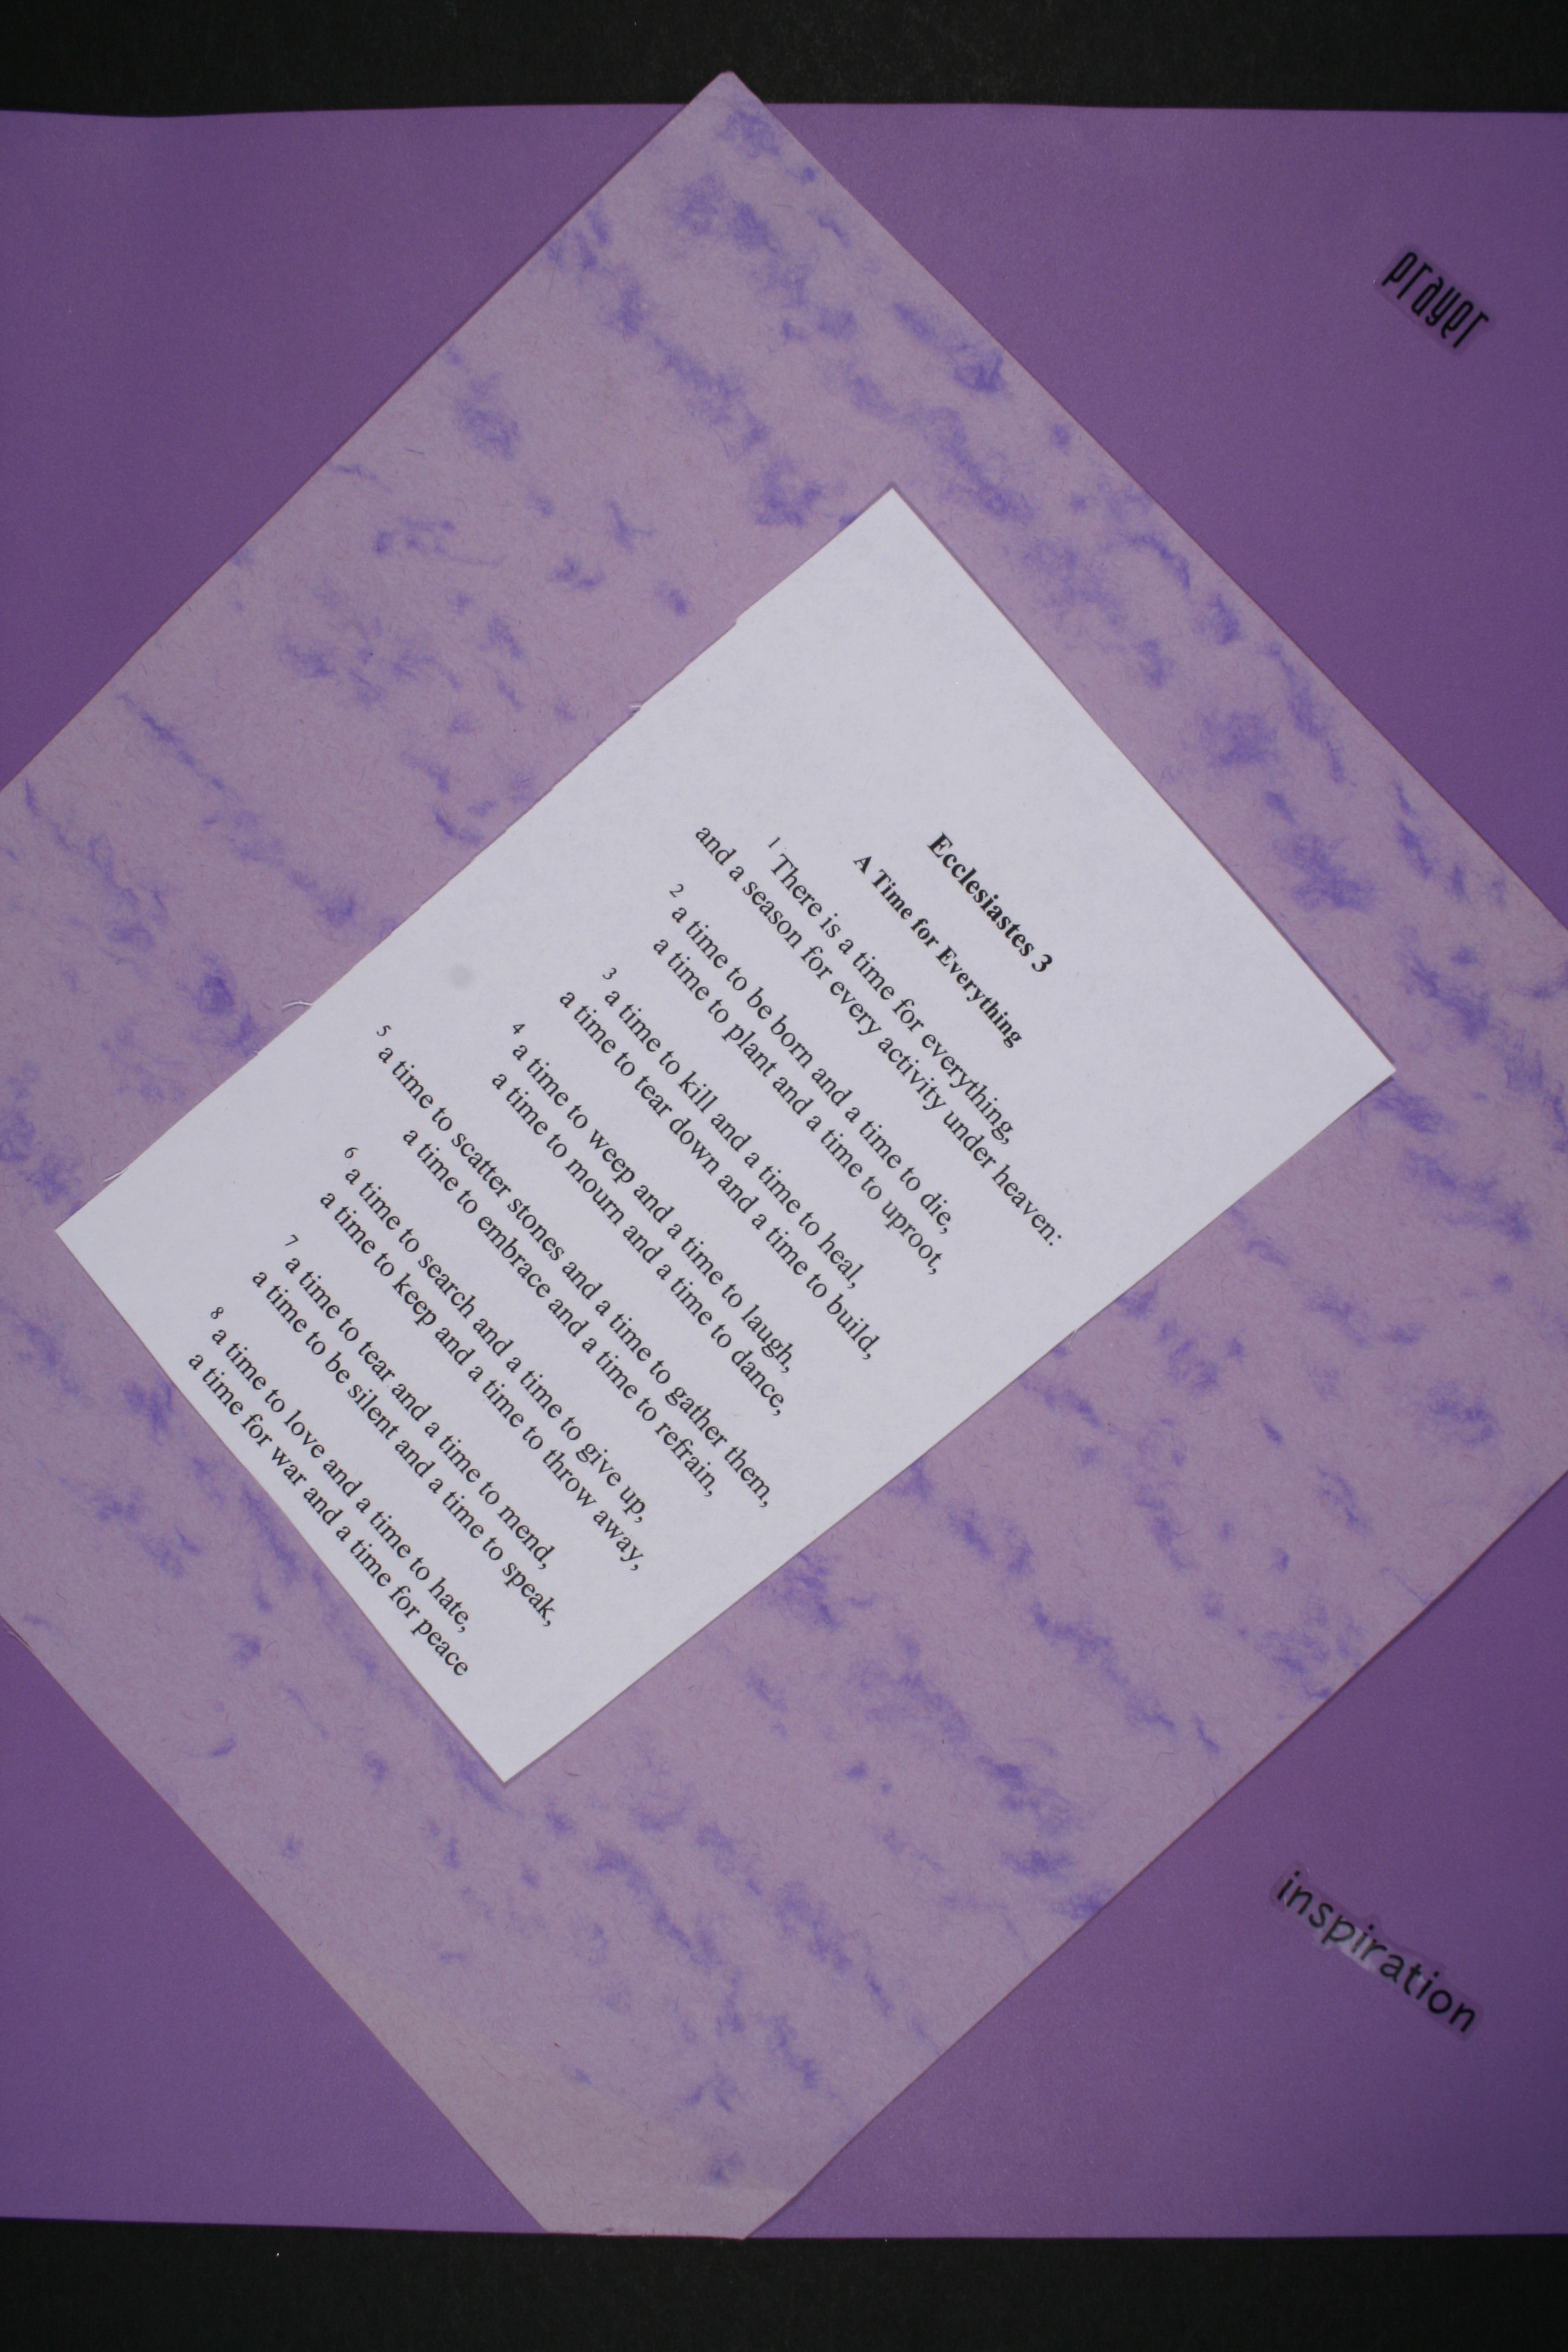 prayer
Ecclesiastes 3
A Time for Everything
1 There is a time for everything,
and a season for every activity under heaven:
2 a time to be born and a time to die,
a time to plant and a time to uproot,
3 a time to kill and a time to heal,
a time to tear down and a time to build,
4 a time to weep and a time to laugh,
a time to mourn and a time to dance,
5 a time to scatter stones and a time to gather them,
a time to embrace and a time to refrain,
6 a time to search and a time to give up,
a time to keep and a time to throw away,
7 a time to tear and a time to mend,
a time to be silent and a time to speak,
8 a time to love and a time to hate,
a time for war and a time for peace
inspiration